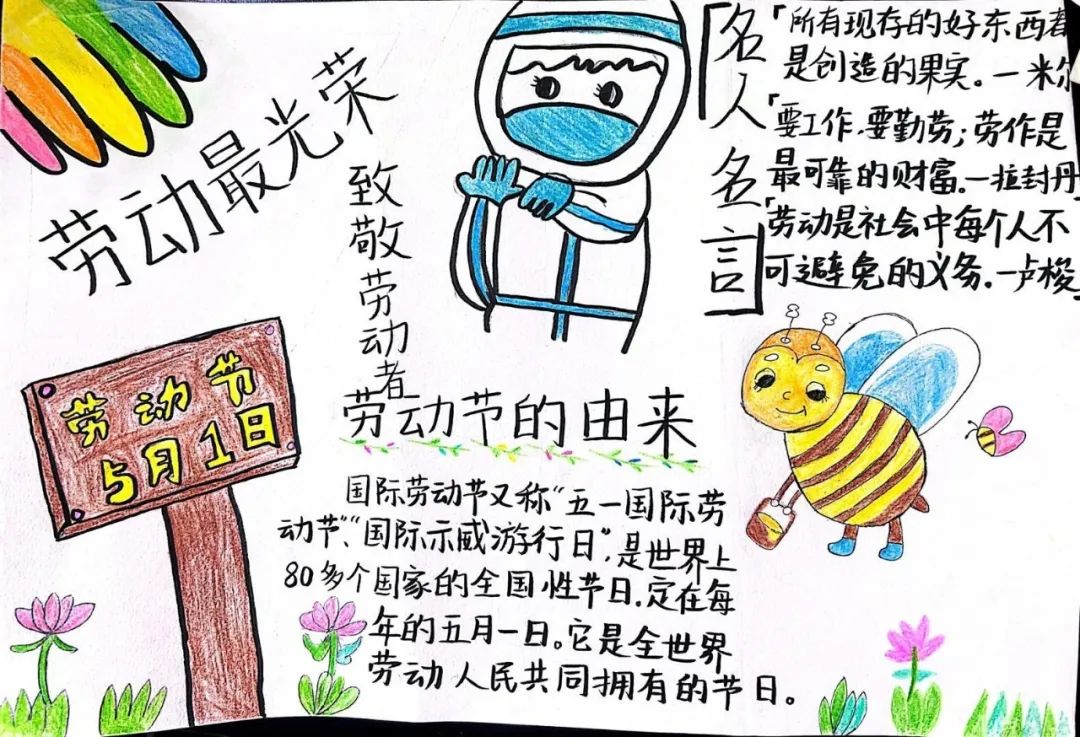 劳动最光荣
致敬劳动者
名人名言
「所有现存的好东西都
是创造的果实。一米尔
「要工作,要勤劳;劳作是
最可靠的财富.一拉封丹
「劳动是社会中每个人不
可避免的义务。一卢梭
劳动节
5月1日
劳动节的由来
国际劳动节又称“五一国际劳
动节”、“国际示威游行日”,是世界上
80多个国家的全国性节日.定在每
年的五月一日。它是全世界
劳动人民共同拥有的节日。